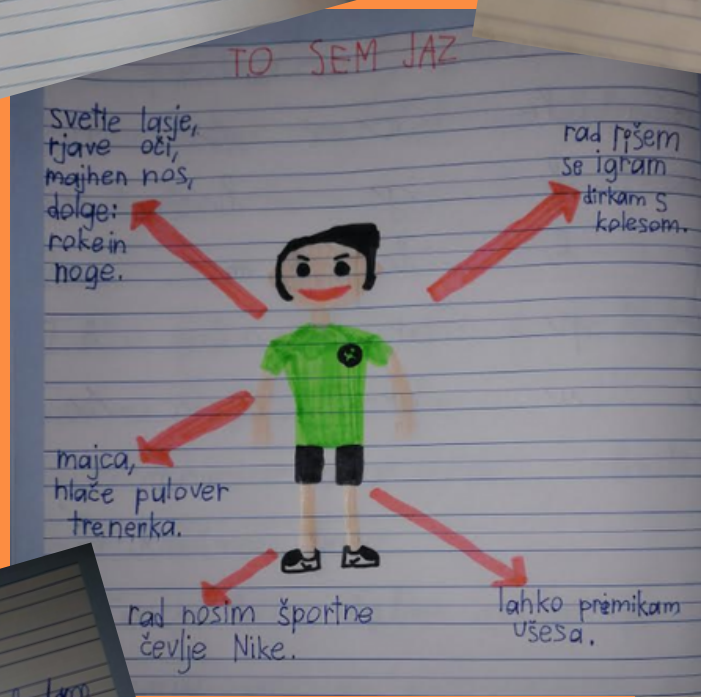 TO SEM JAZ
svetle lasje,
rjave oči,
majhen nos,
dolge:
roke in
noge.
rad rišem
se igram
dirkam s
kolesom.
majca,
hlače pulover
trenerka.
rad nosim športne
čevlje Nike.
lahko premikam
ušesa.